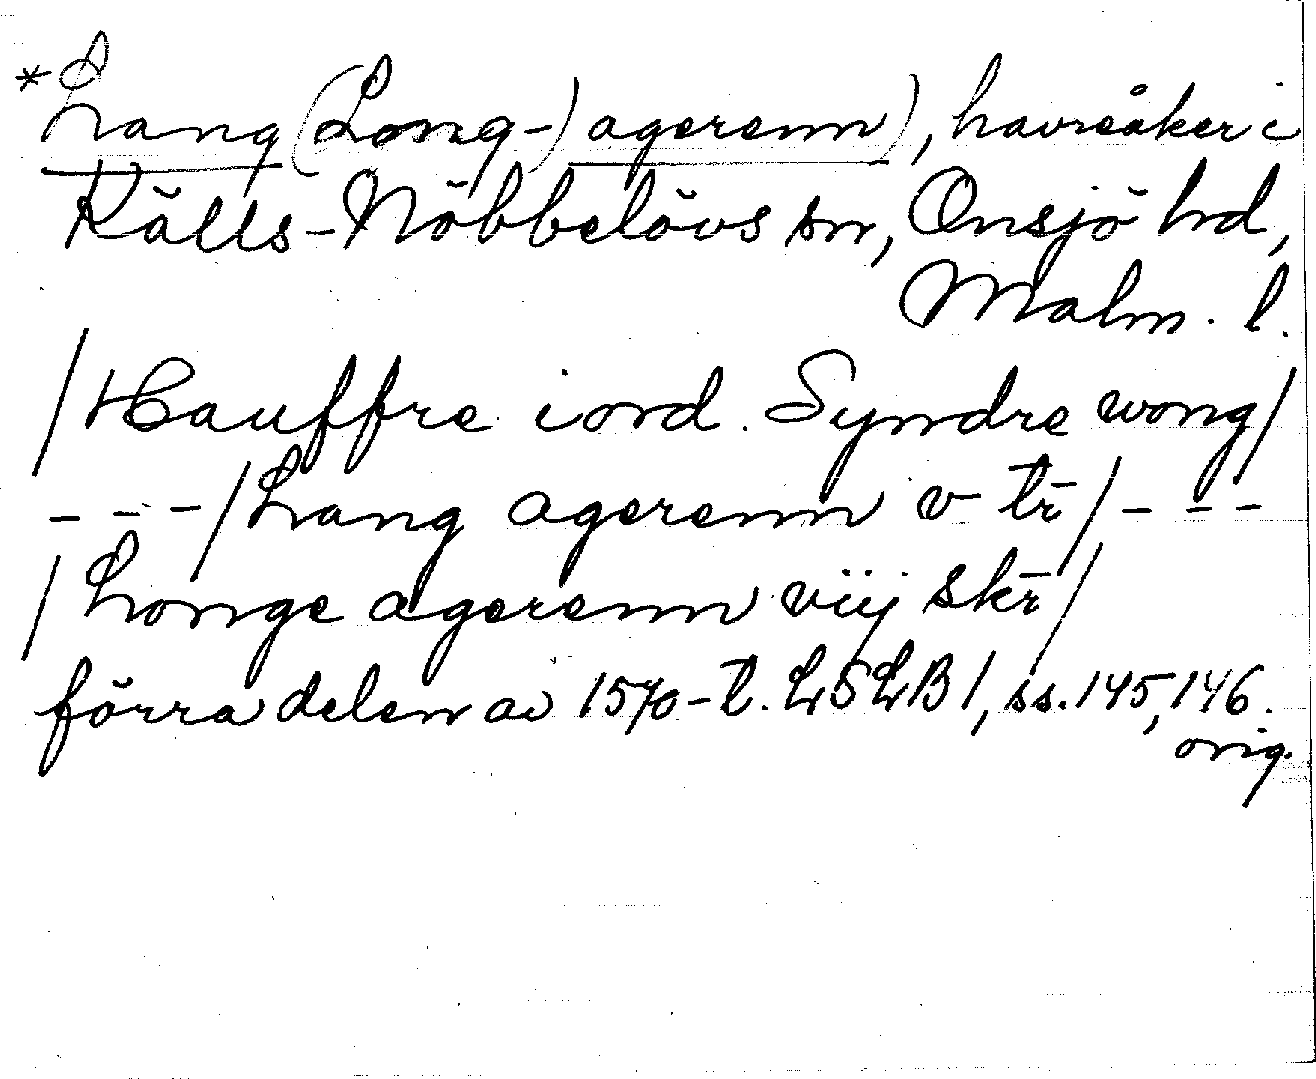 *Lang (Long-) agerenn), havreåker i
Källs-Nöbbelövs sn, Onsjö hd,
Malm. l.
/Hauffre iord. Syndre wong/
---/Lang agerenn v tr̄/---
/Longe agerenn viij skr̄/
förra delen av 1570-t. LSLB 1, ss. 145, 146.
orig.